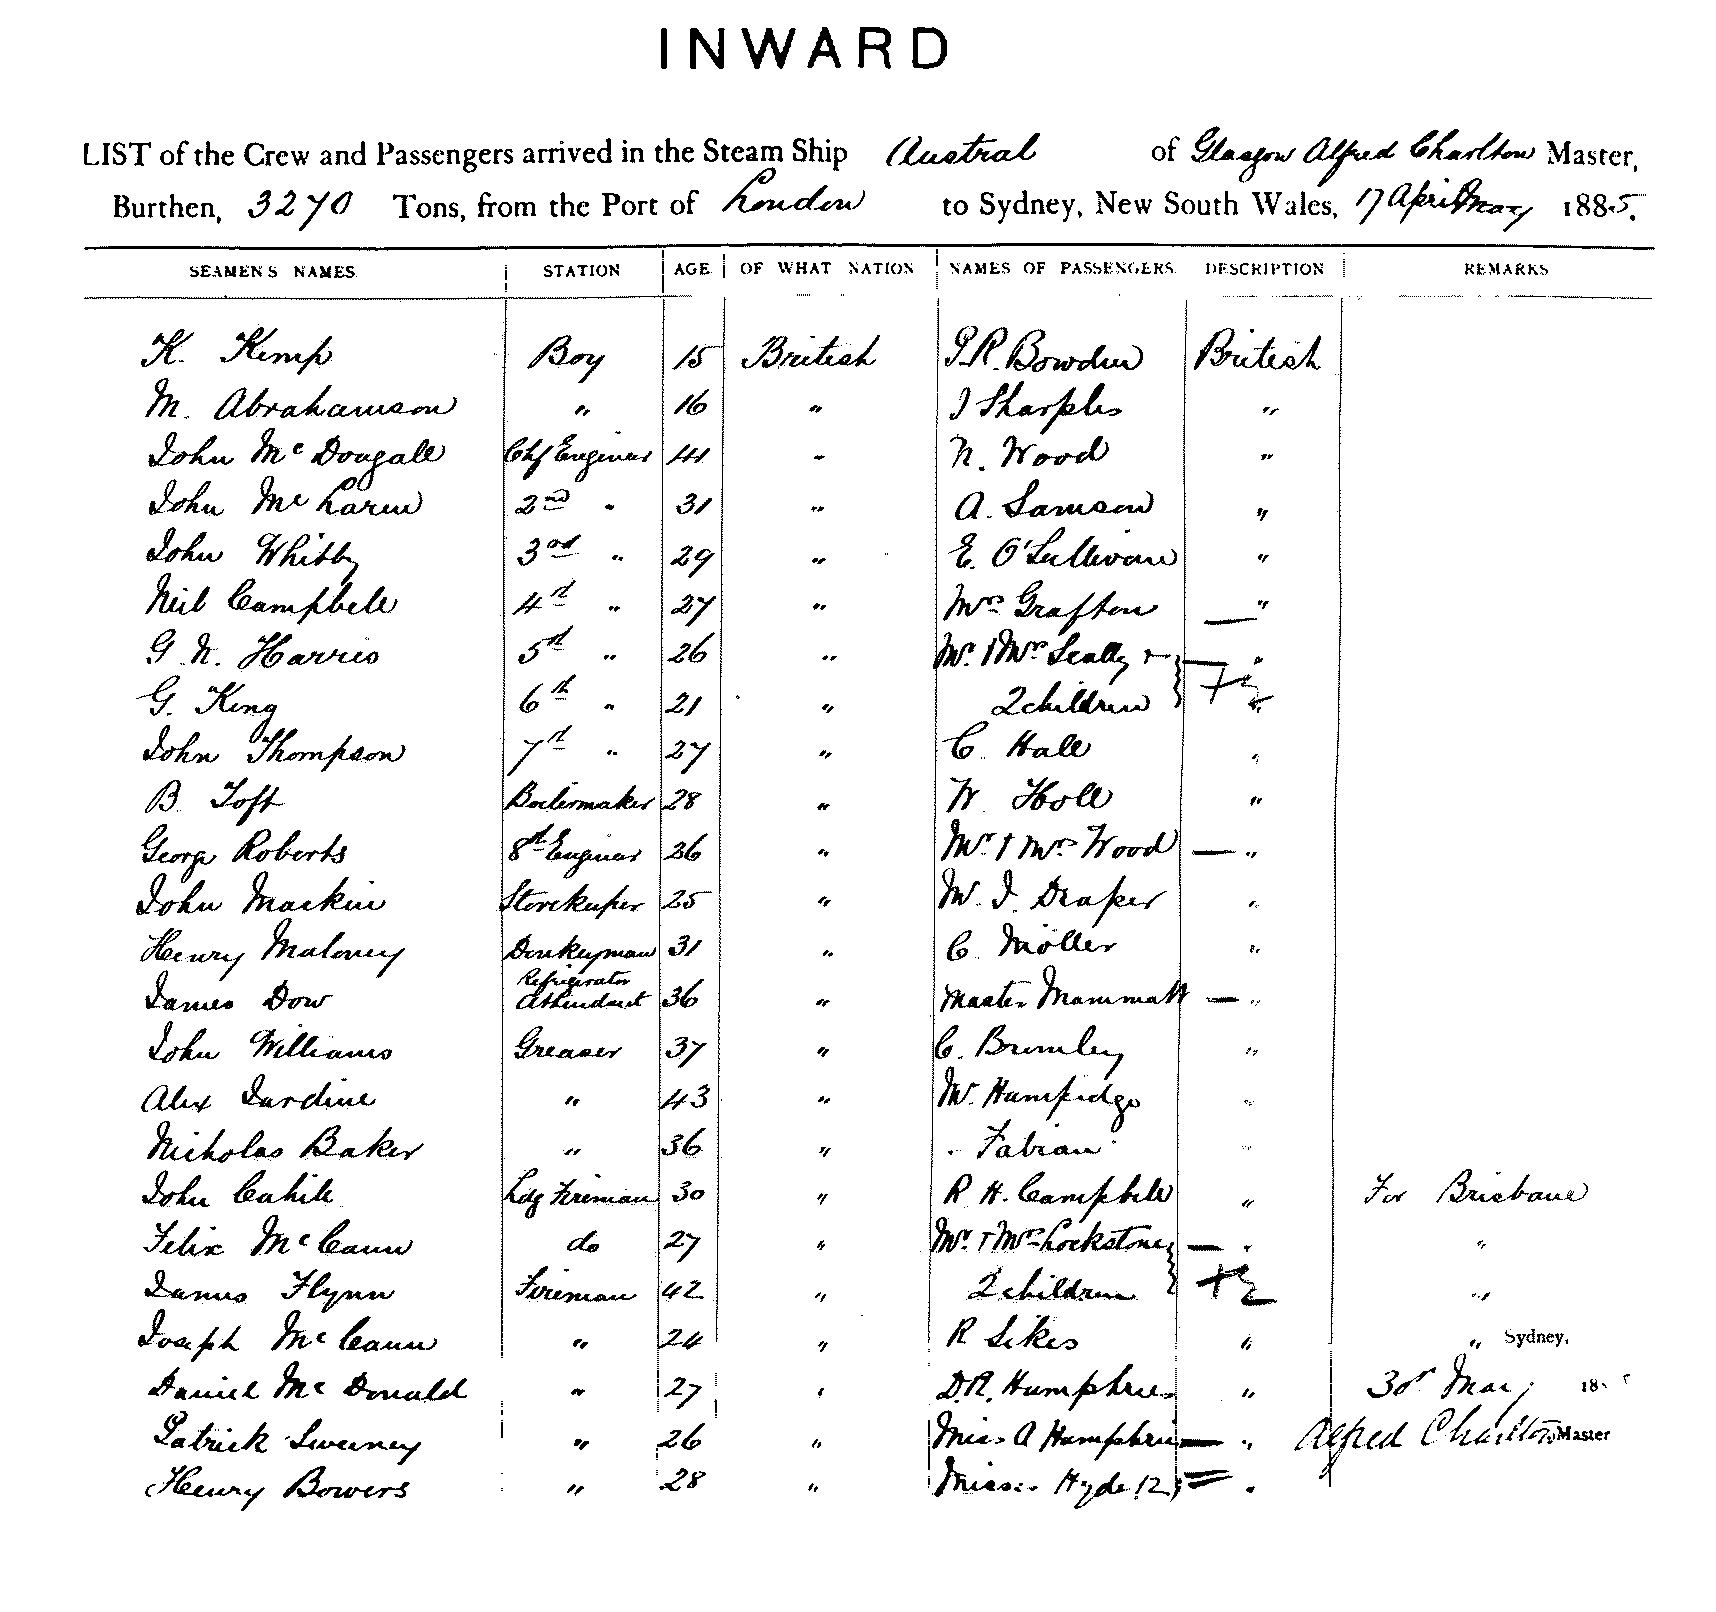 INWARD
LIST of the Crew and Passengers arrived in the Steam Ship Austral of Glasgow Alfred Charlton Master,
Burthen, 3270 Tons, from the Port of London to Sydney, New South Wales, 17 April May 1885.
SEAMEN'S NAMES STATION AGE OF WHAT NATION NAMES OF PASSENGERS DESCRIPTION REMARKS
K. Kemp Boy 15 British P.R. Bowden British
M. Abrahamson " 16 " J Sharples "
John Mc Dougall Chf Engineer 41 " N. Wood "
John Mc Laren 2nd " 31 " A. Samson "
John Whitby 3rd " 29 " E. O'Sullivan "
Neil Campbell 4th " 27 " Mrs Grafton — "
G. N. Harris 5th " 26 " Mr & Mrs Scally & — "
G. King 6th " 21 " 2 children + 2 "
John Thompson 7th " 27 " C. Hall "
B. Toft Boilermaker 28 " W Holl "
George Roberts 8th Engineer 36 " Mr & Mrs Wood — "
John Mackin Storekeeper 25 " W. J. Draper "
Henry Maloney Donkeyman 31 " C. Möller "
James Dow Refrigerator Attendant 36 " Master Mammatt — "
John Williams Greaser 37 " C. Brumley "
Alex Jardine " 43 " W. Humpidge "
Nicholas Baker " 36 " - Fabian "
John Cahill Ldg Fireman 30 " R H. Campbell " For Brisbane
Felix Mc Cann do 27 " Mr & Mrs Lockstone — " "
James Flynn Fireman 42 " 2 children + 2 "
Joseph Mc Cann " 24 " R Sikes " " Sydney,
Daniel Mc Donald " 27 " D.R. Humphries " 30th May 188
Patrick Sweeney " 26 " Miss A Humphries — " Alfred Charlton Master
Henry Bowers " 28 " Misses Hyde (2) = "